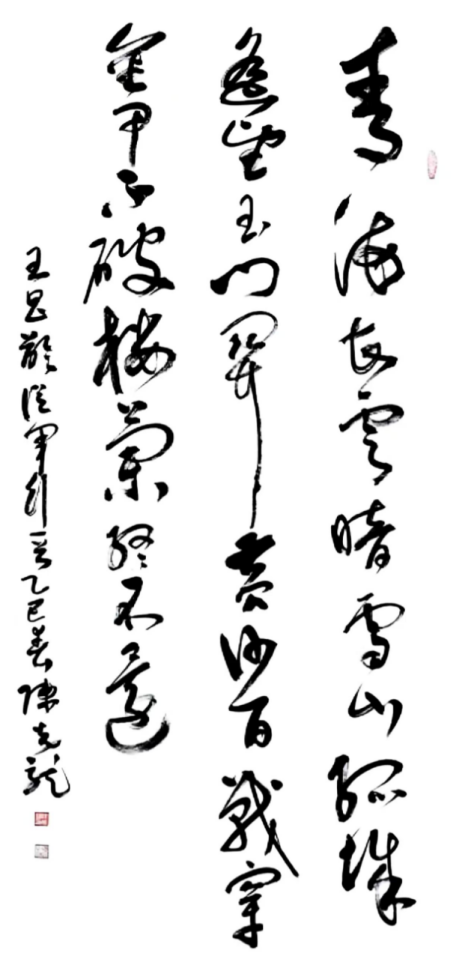 青海長雲暗雪山孤城
遙望玉門關黃沙百戰穿
金甲不破樓蘭終不還
王昌齡從軍行乙巳春陳克龍